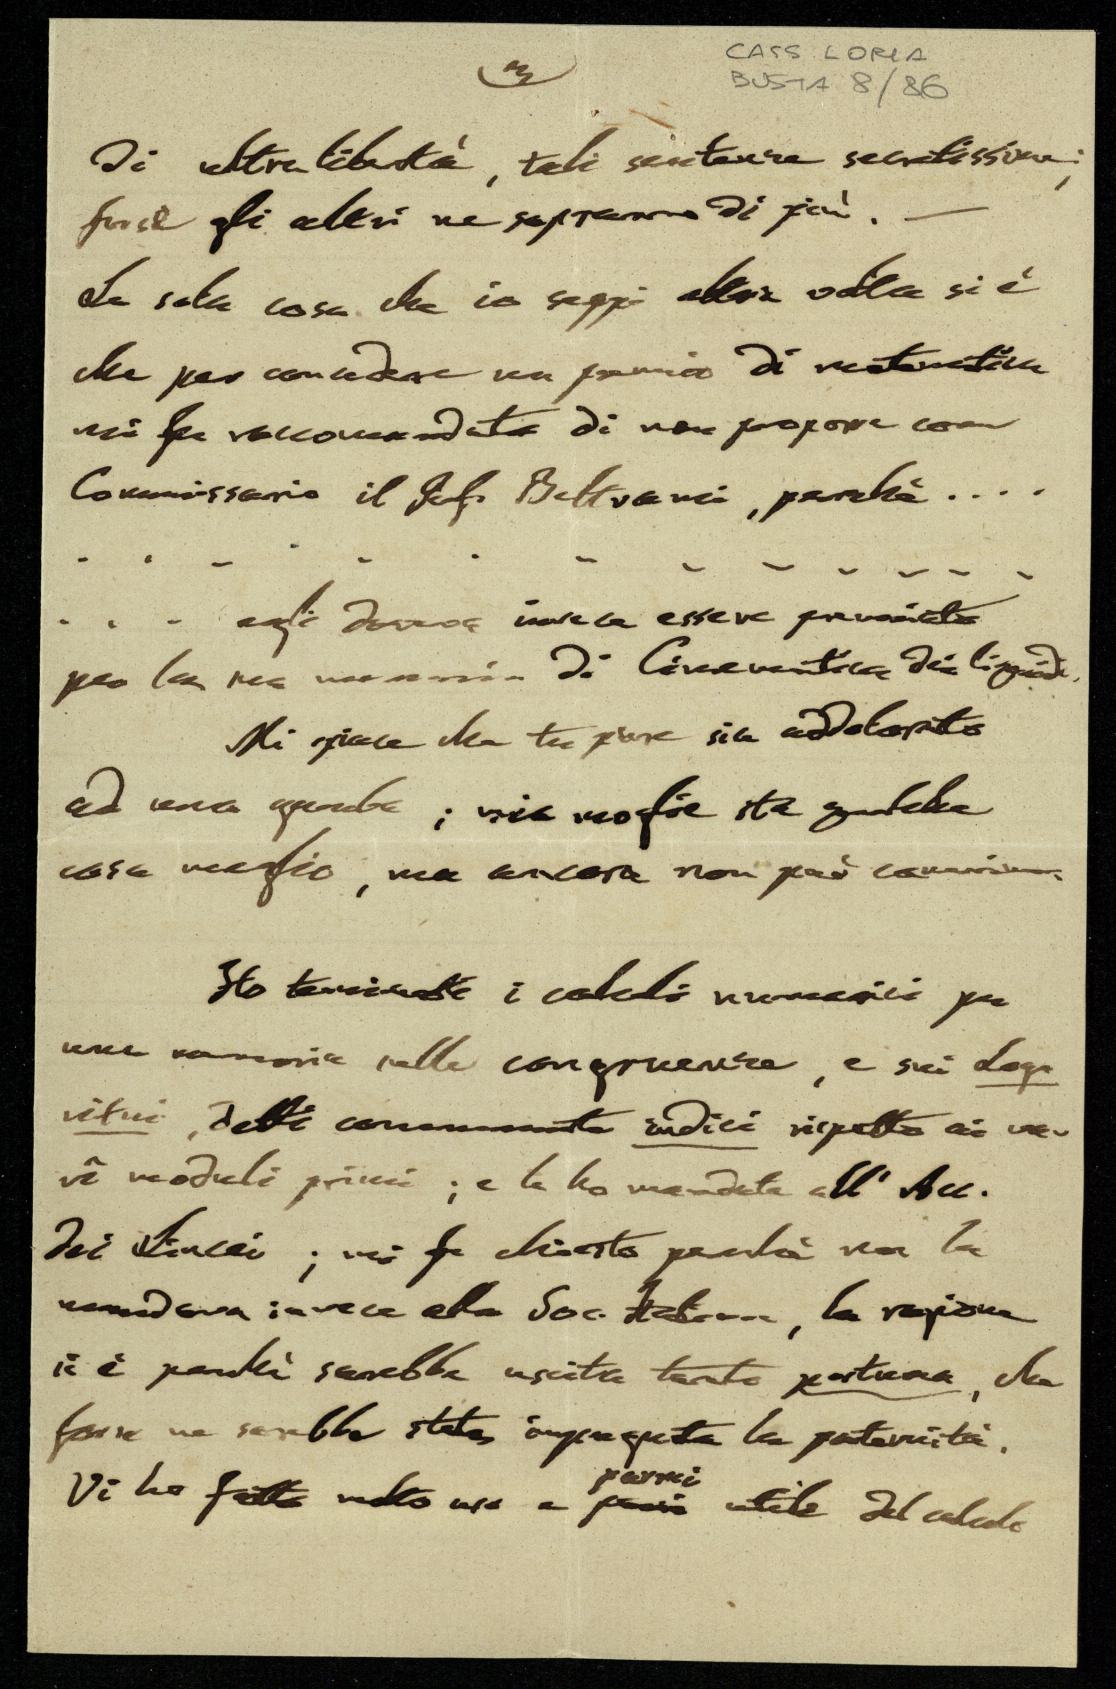 3)
CASS LORIA
BUSTA 8/86
di ultra libertà, tali sentenze secretissime;
forse gli altri ne sapranno di più. —
La sola cosa che io seppi altra volta si è
che per concedere un premio di matematica
mi fu raccomandato di non proporre come
Commissario il Prof. Beltrami, perchè ....
. . . . . . . . . . . . .
. . . egli doveva invece essere premiato
per la sua memoria di Cinematica dei liquidi.
Mi spiace che tu pure sia addolorato
ad una gamba ; mia moglie sta qualche
cosa meglio, ma ancora non può camminare.
Ho terminato i calcoli numerici per
una memoria sulle congruenze, e sui Loga
ritmi, detti comunemente indici rispetto ai va-
rî moduli primi ; e la ho mandata all' Acc.
dei Lincei ; mi fu chiesto perchè non la
mandava invece alla Soc. Italiana, la ragione
si è perchè sarebbe uscita tanto postuma, che
forse ne sarebbe stata impugnata la paternità.
Vi ho fatto molto uso e parmi utile del calcolo